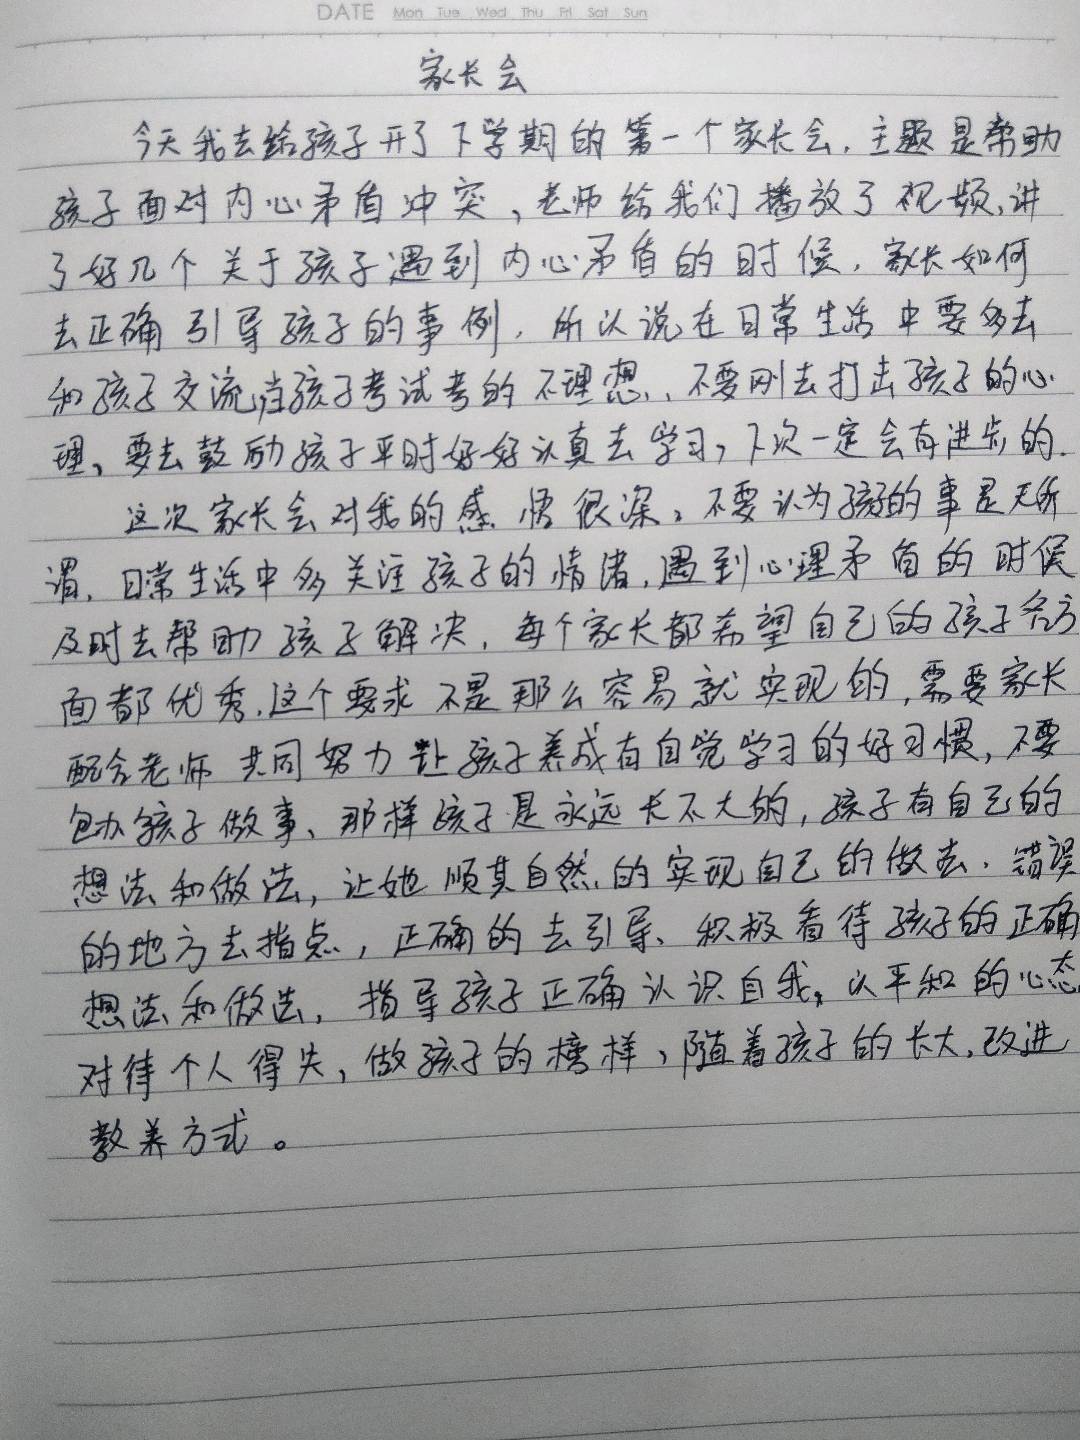 DATE Mon Tue Wed Thu Fri Sat Sun
家长会
今天我去给孩子开了下学期的第一个家长会.主题是帮助
孩子面对内心矛盾冲突,老师给我们播放了视频,讲
了好几个关于孩子遇到内心矛盾的时候.家长如何
去正确引导孩子的事例.所以说在日常生活中要多去
和孩子交流,当孩子考试考的不理想,不要刚去打击孩子的心
理、要去鼓励孩子平时好好认真去学习,下次一定会有进步的.
这次家长会对我的感悟很深。不要认为孩子的事是无所
谓.日常生活中多关注孩子的情绪.遇到心理矛盾的时候
及时去帮助孩子解决.每个家长都希望自己的孩子各方
面都优秀.这个要求不是那么容易就实现的,需要家长
配合老师共同努力让孩子养成有自觉学习的好习惯,不要
包办孩子做事、那样孩子是永远长不大的,孩子有自己的
想法和做法,让她顺其自然的实现自己的做法.错误
的地方去指点,正确的去引导、积极看待孩子的正确
想法和做法,指导孩子正确认识自我,以平和的心态
对待个人得失,做孩子的榜样,随着孩子的长大,改进
教养方式。